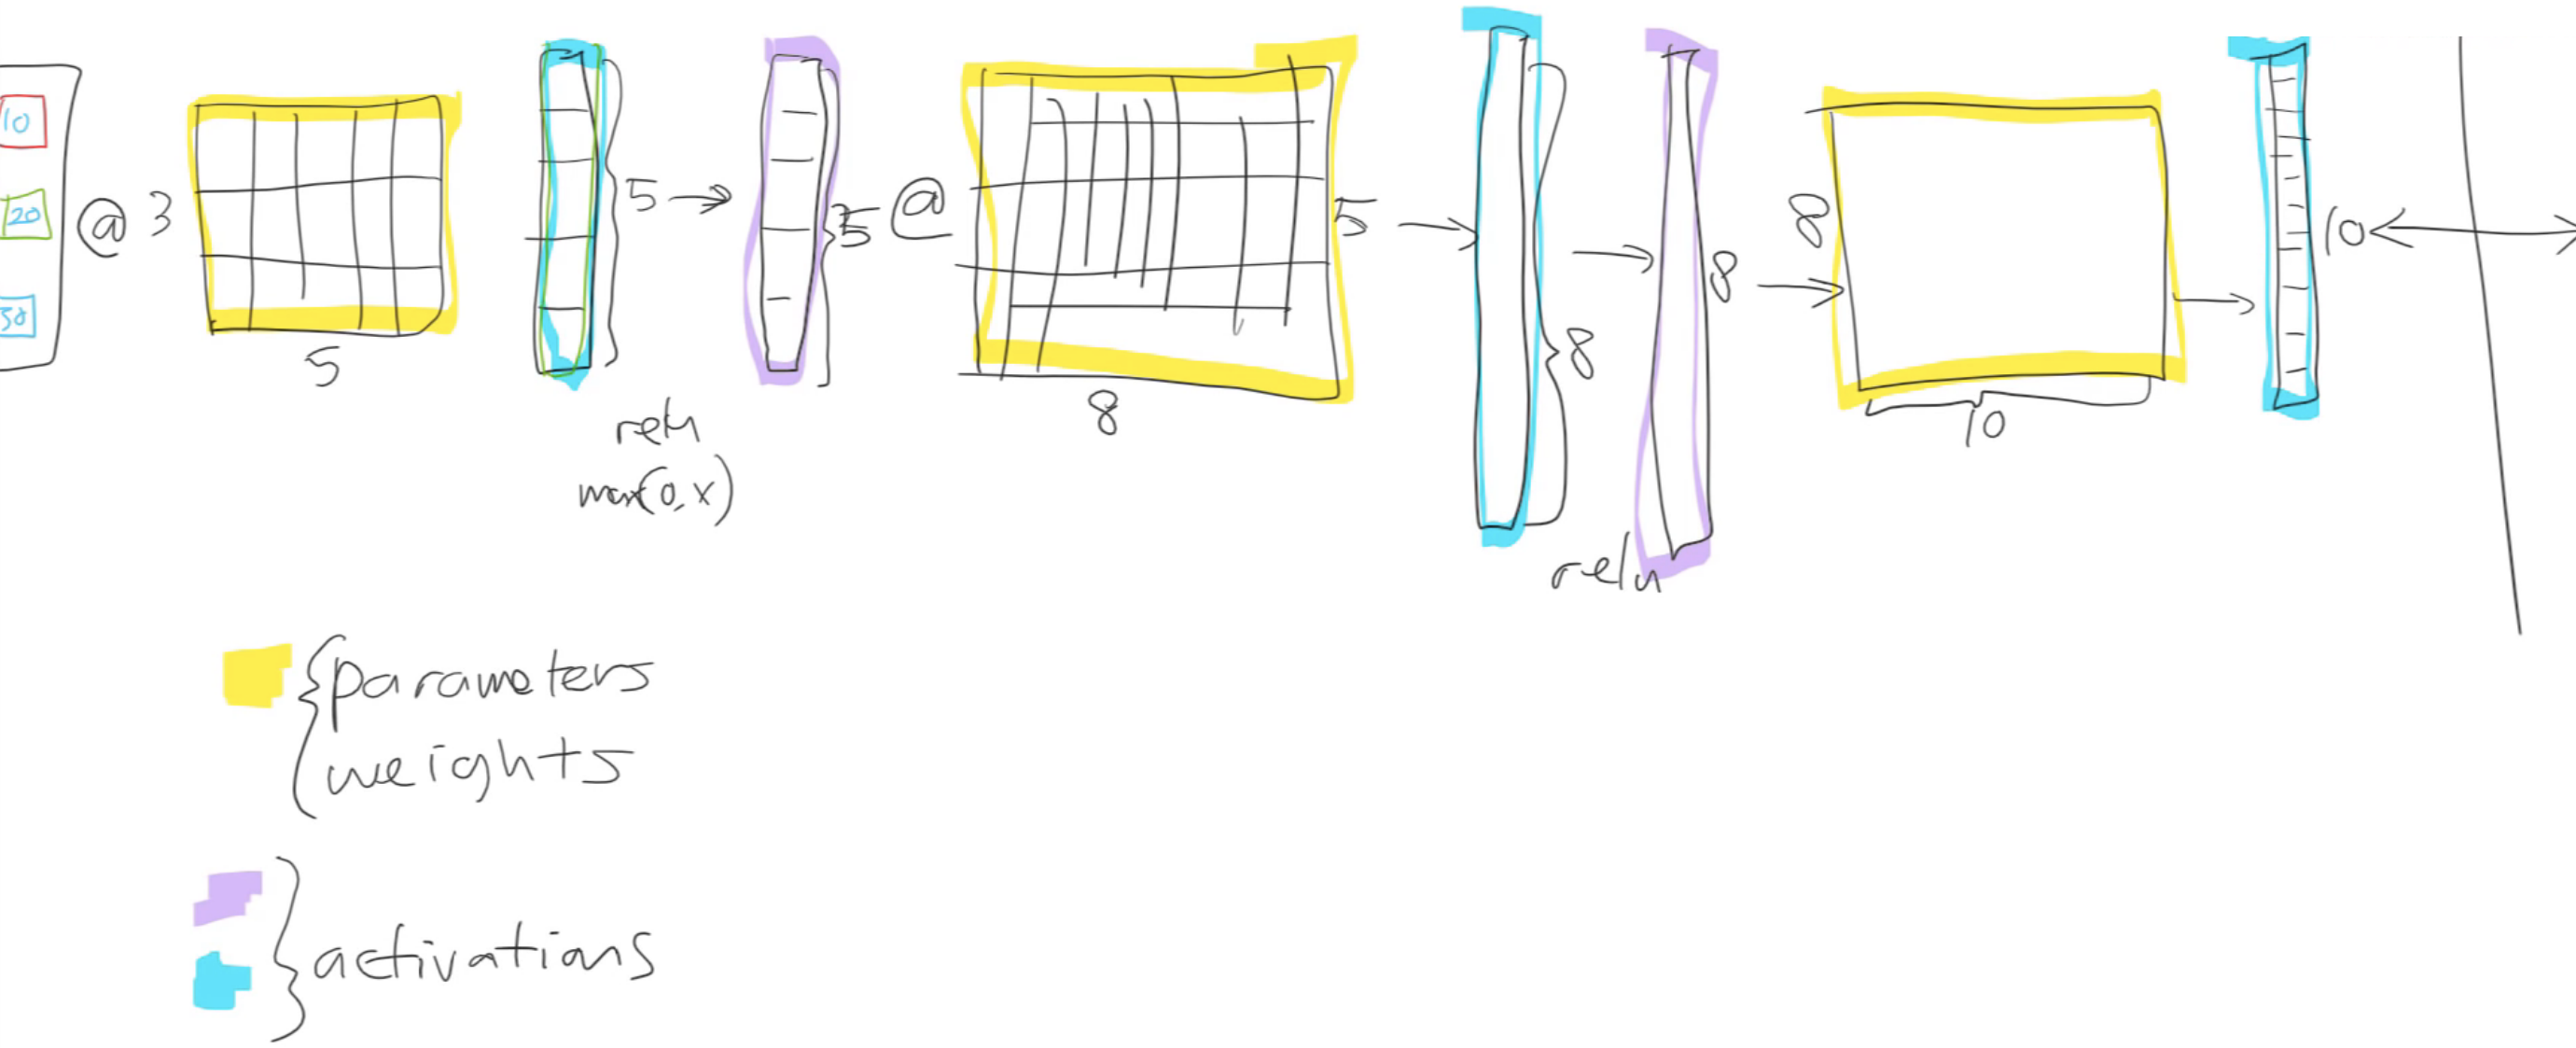 10
20
30
@ 3
5
5
relu
max(0,x)
5 @
8
5
8
relu
8
8
10
10
parameters
weights
activations